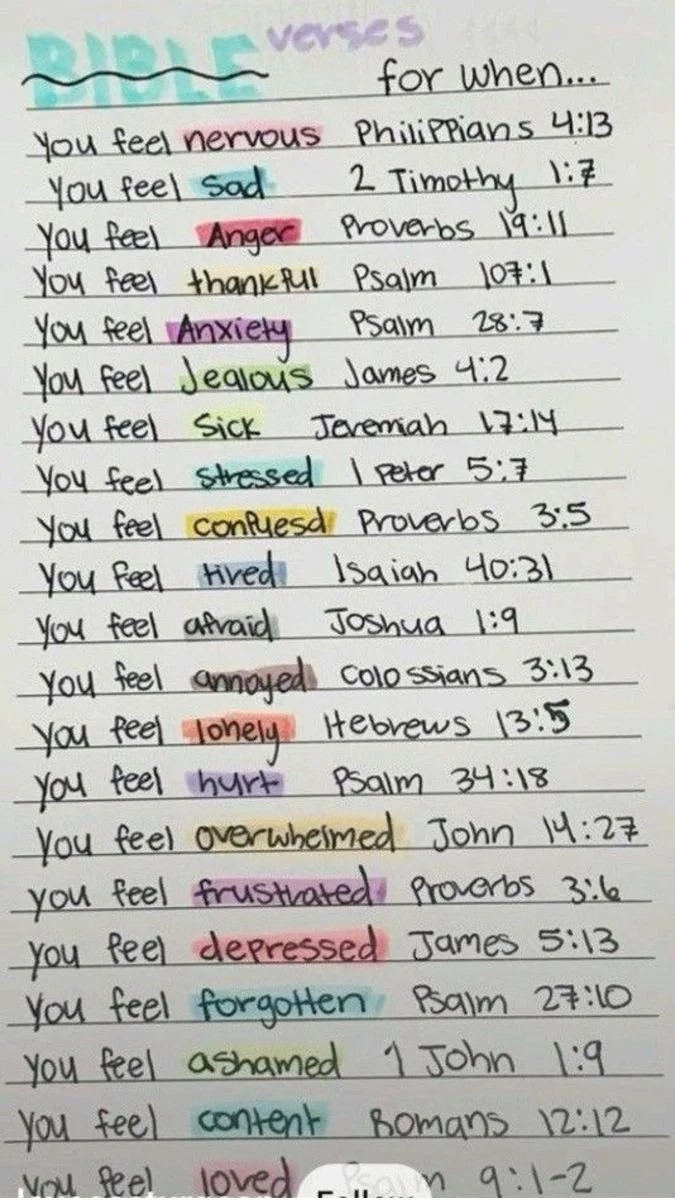 BIBLE verses
for when...
You feel nervous Philippians 4:13
You feel sad 2 Timothy 1:7
You feel Anger Proverbs 19:11
You feel thankful Psalm 107:1
You feel Anxiety Psalm 28:7
You feel Jealous James 4:2
You feel Sick Jeremiah 17:14
You feel stressed 1 Peter 5:7
You feel confuesd Proverbs 3:5
You feel tired Isaiah 40:31
You feel afraid Joshua 1:9
You feel annoyed Colossians 3:13
You feel lonely Hebrews 13:5
You feel hurt Psalm 34:18
You feel overwhelmed John 14:27
you feel frustrated Proverbs 3:6
you feel depressed James 5:13
You feel forgotten Psalm 27:10
You feel ashamed 1 John 1:9
You feel content Romans 12:12
You feel loved Psalm 9:1-2